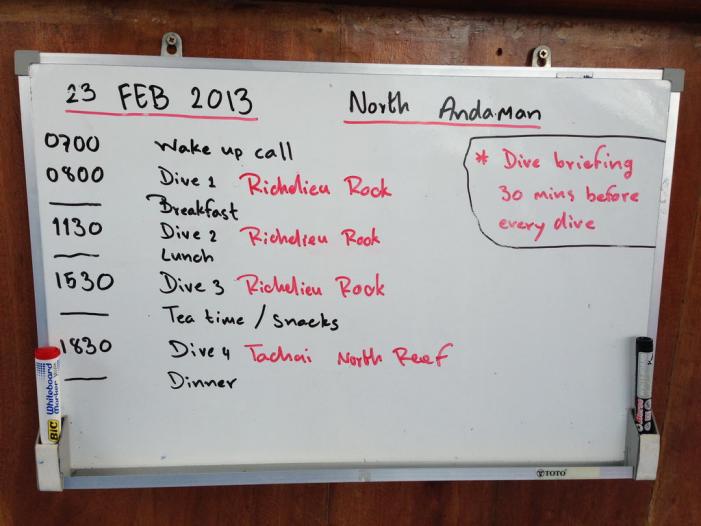 23 FEB 2013 North Andaman
0700 Wake up call
0800 Dive 1 Richelieu Rock
— Breakfast
1130 Dive 2 Richelieu Rock
— Lunch
1530 Dive 3 Richelieu Rock
— Tea time / snacks
1830 Dive 4 Tachai North Reef
— Dinner
* Dive briefing
30 mins before
every dive
BIC Whiteboard Marker
TOTO